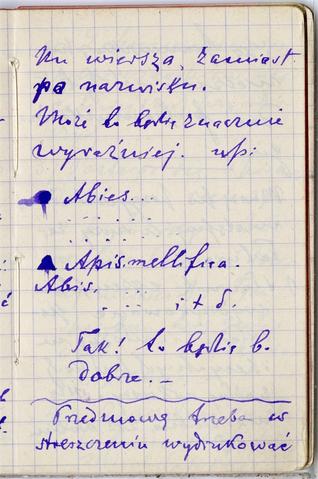 Nu wiersza, zamiast
pa nazwisku.
Może to będzie znacznie
wyraźniej. np:
Abies...
. . . . . .
. . . . .
Apis mellifica.
Abis.
. . . . i t d.
Tak! to będzie b.
dobrze. –
Przedmowę trzeba w
streszczeniu wydrukować